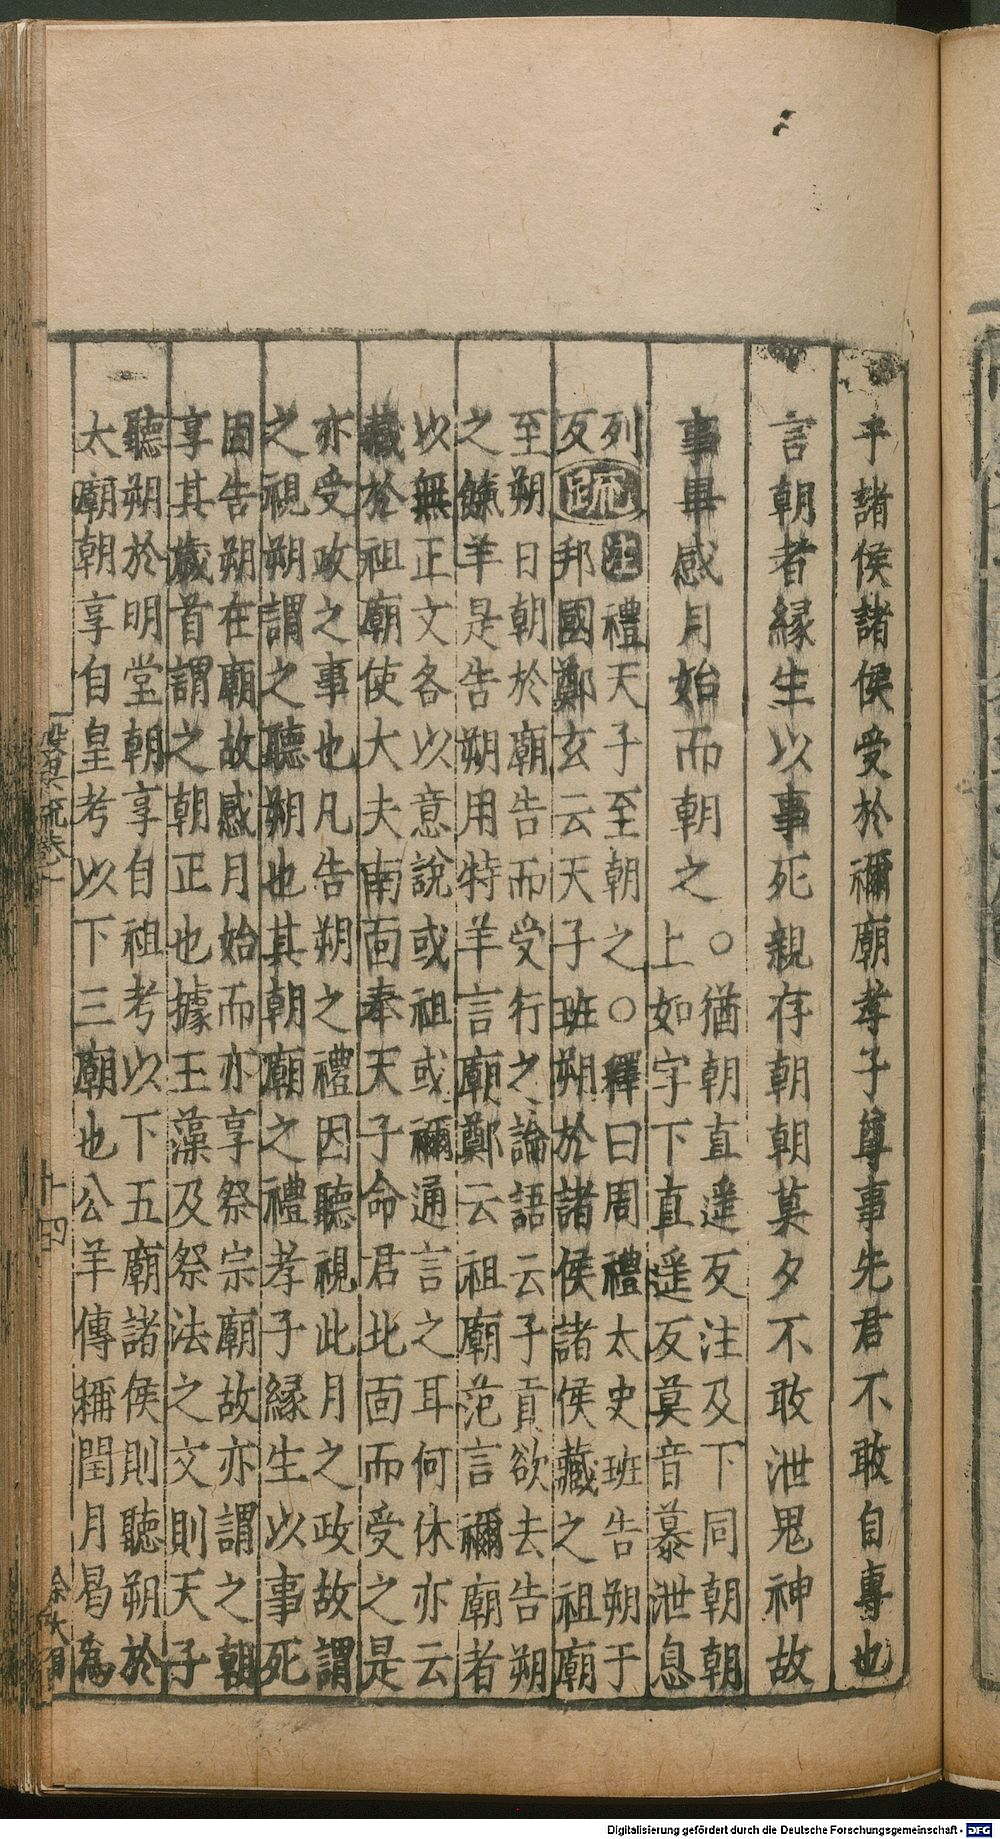 乎諸侯諸侯受於禰廟孝子尊事先君不敢自專也
言朝者緣生以事死親存朝朝莫夕不敢泄鬼神故
事畢感月始而朝之
○猶朝直遥反注及下同朝朝
上如字下直遥反莫音暮泄息
列
反
疏
注
禮天子至朝之○釋曰周禮太史班告朔于
邦國鄭玄云天子班朔於諸侯諸侯藏之祖廟
至朔日朝於廟告而受行之論語云子貢欲去告朔
之餼羊是告朔用特羊言廟鄭云祖廟范言禰廟者
以無正文各以意說或祖或禰通言之耳何休亦云
藏於祖廟使大夫南面奉天子命君北面而受之是
亦受政之事也凡告朔之禮因聽視此月之政故謂
之視朔謂之聽朔也其朝廟之禮孝子緣生以事死
因告朔在廟故感月始而亦享祭宗廟故亦謂之朝
享其歲首謂之朝正也據玉藻及祭法之文則天子
聽朔於明堂朝享自祖考以下五廟諸侯則聽朔於
太廟朝享自皇考以下三廟也公羊傳稱閏月曷爲
榖梁疏卷一
十四
Digitalisierung gefördert durch die Deutsche Forschungsgemeinschaft - DFG